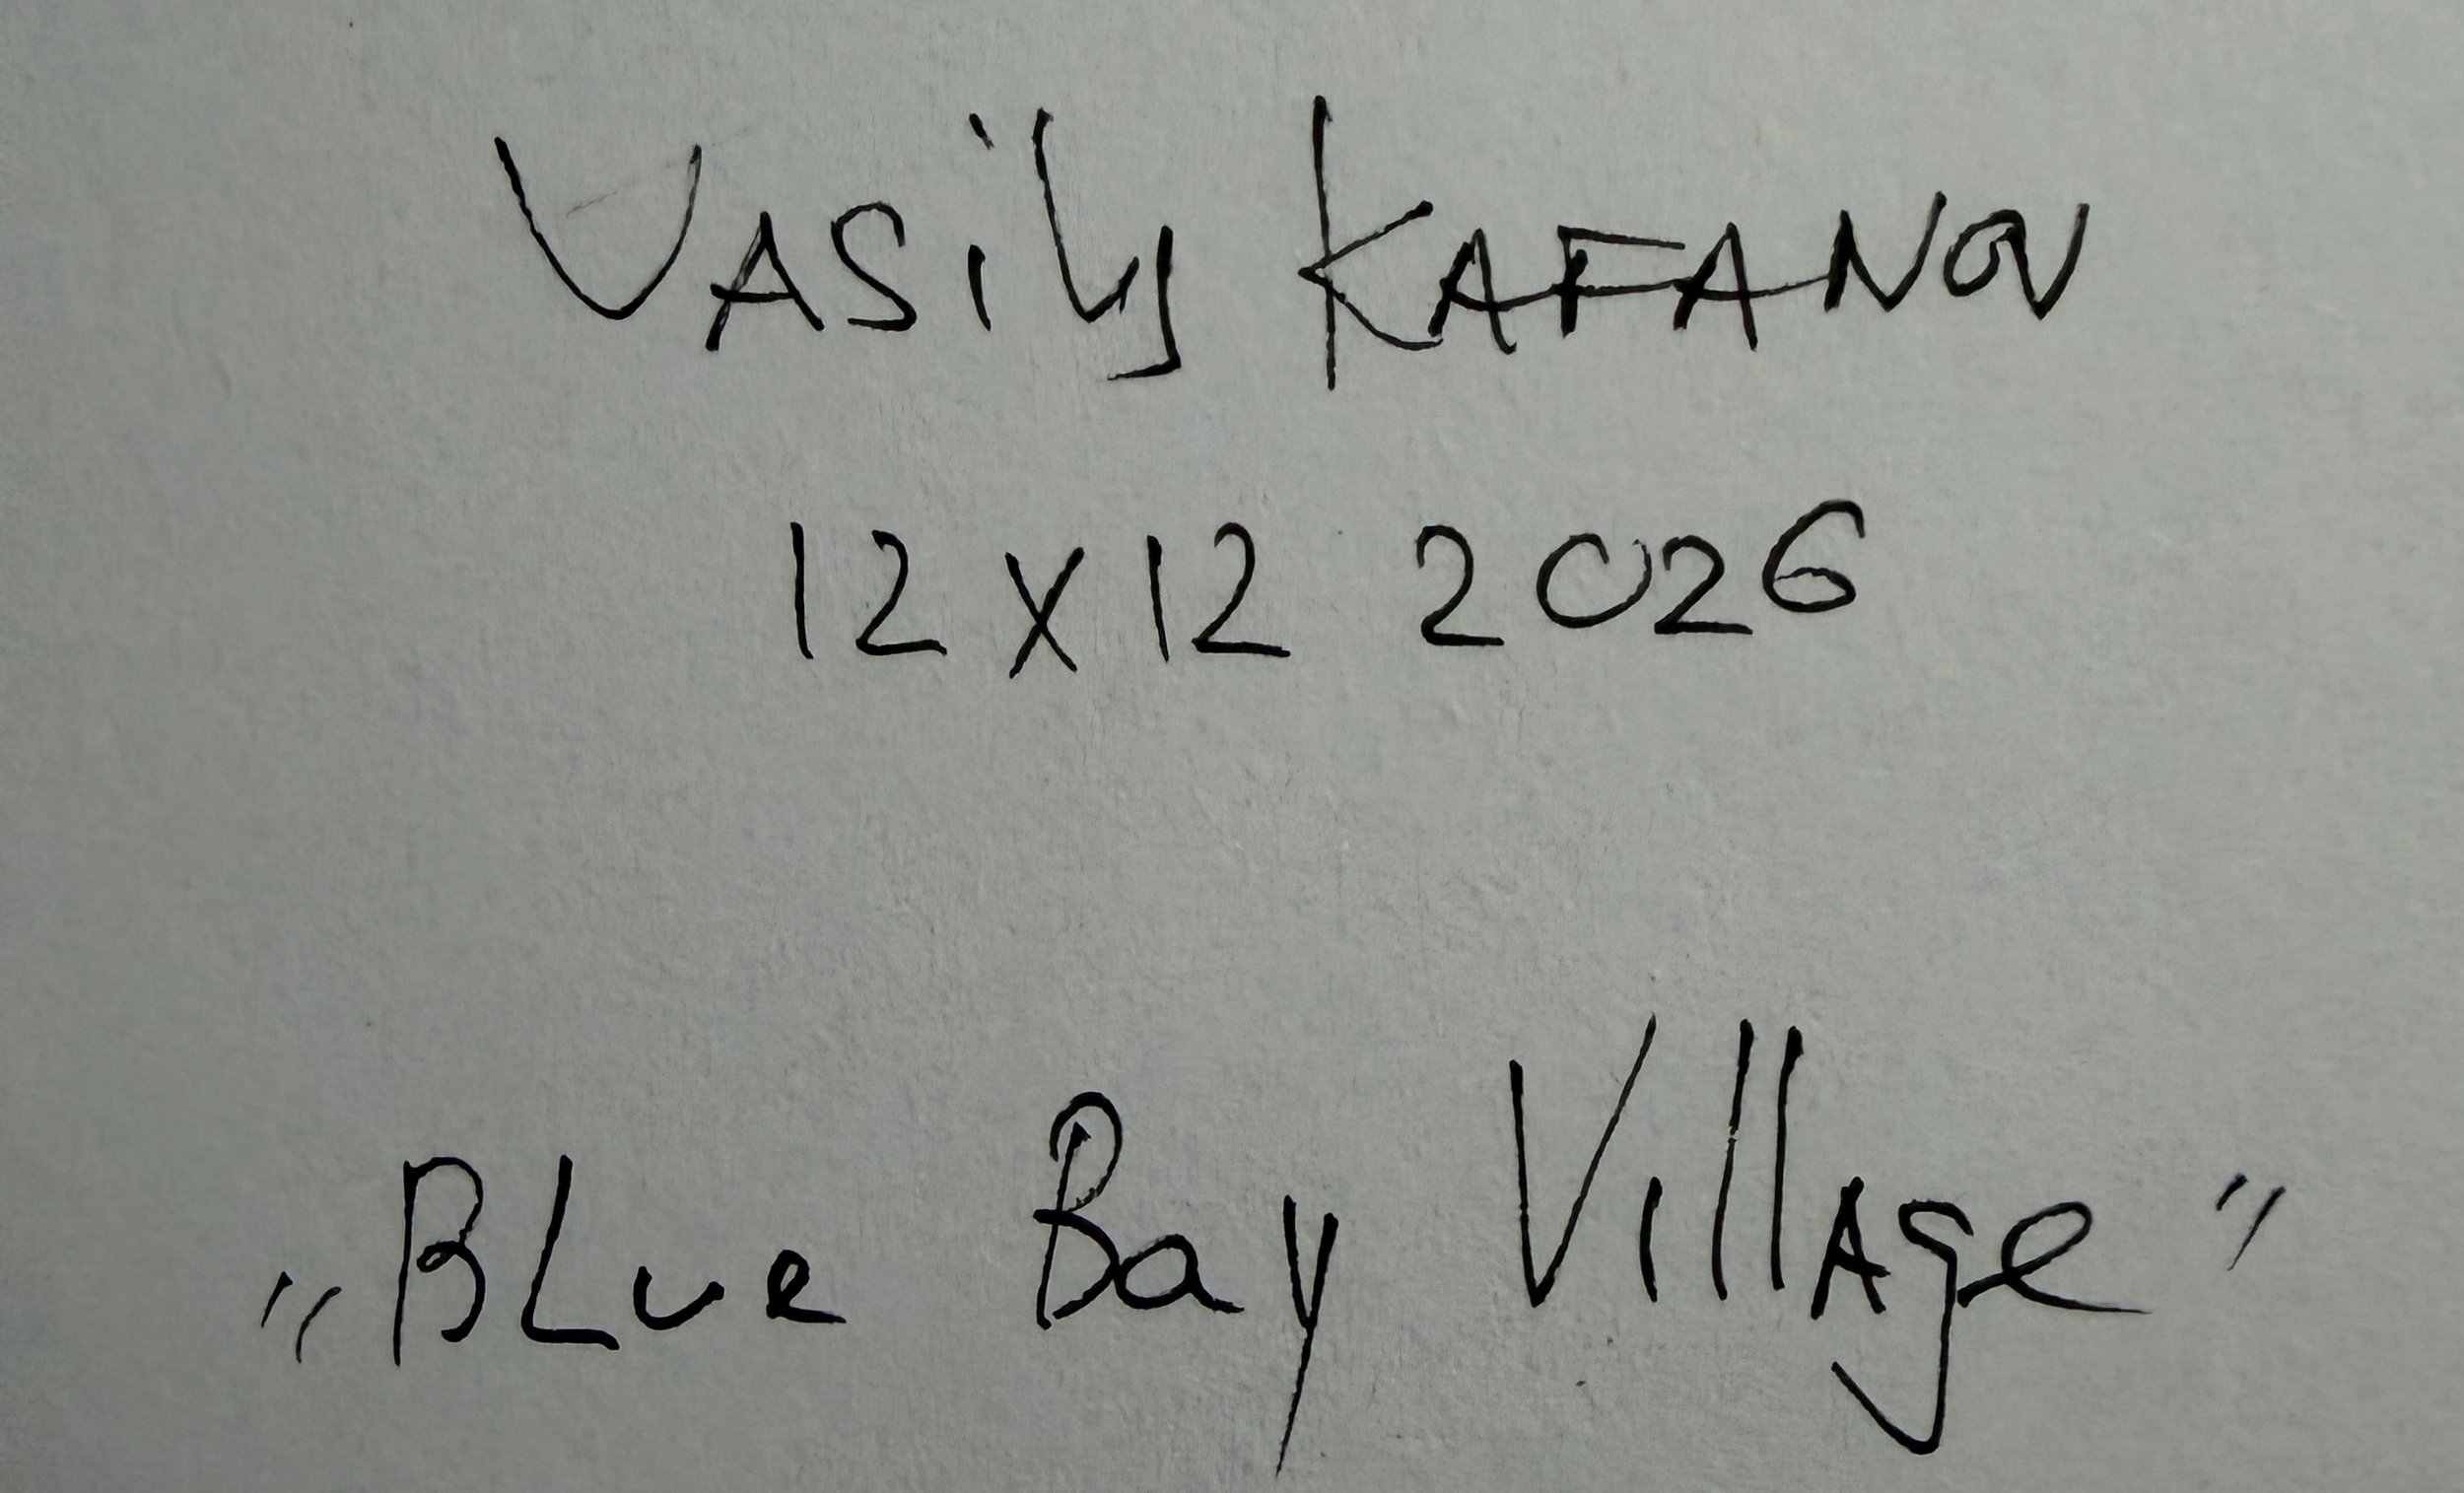 VASily KAFANOV
12 x 12 2026
„BLue Bay VillAge"